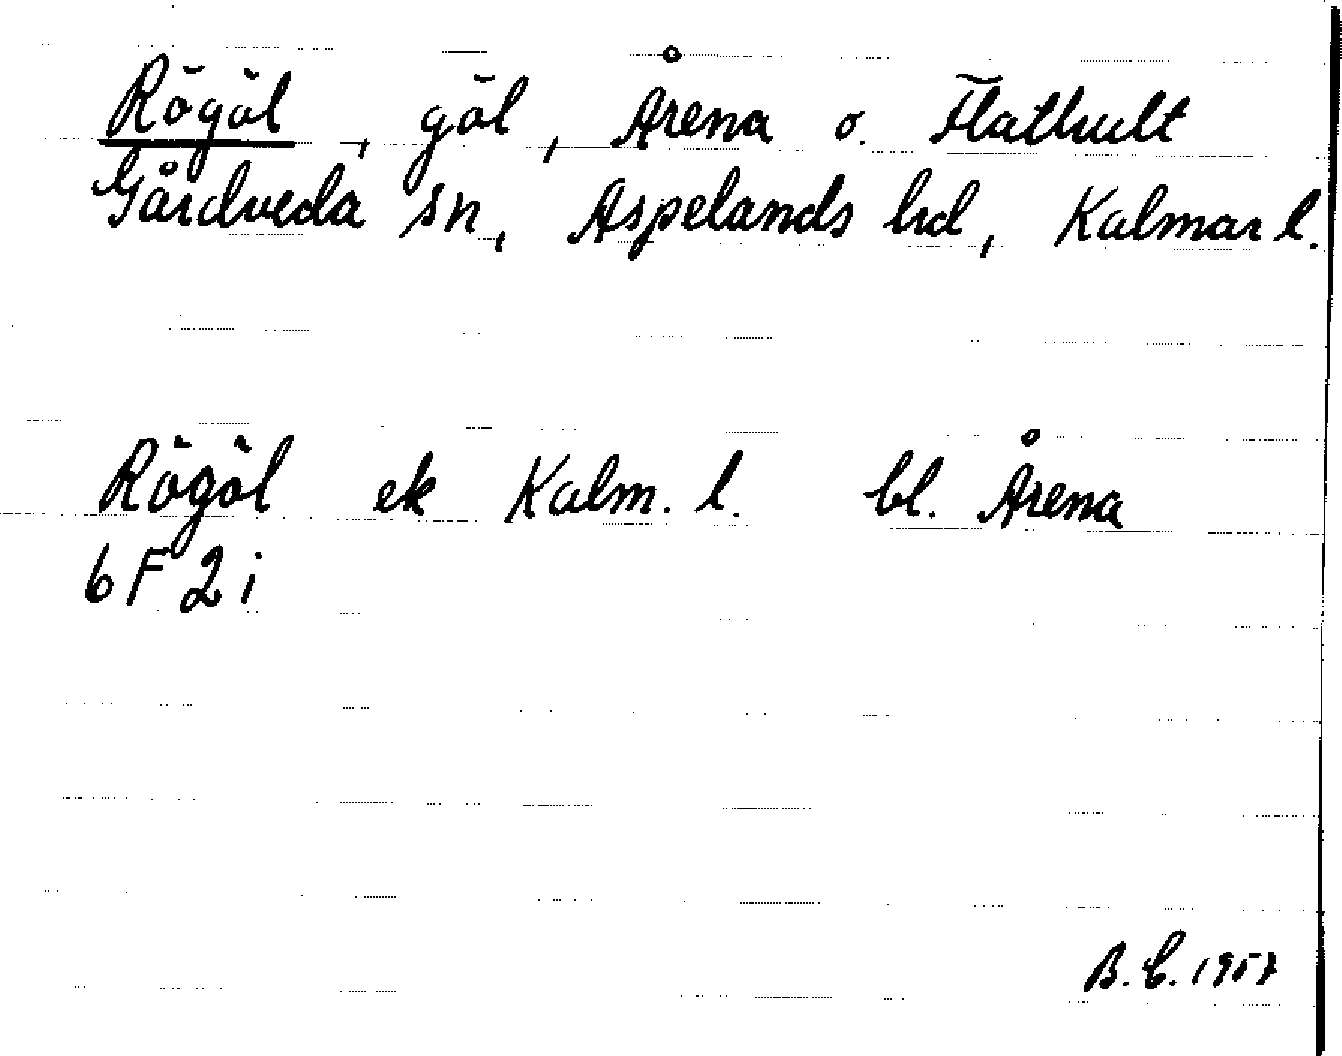 Rögöl, göl, Årena o. Flathult
Gårdveda sn, Aspelands hd, Kalmar l.
Rögöl ek Kalm. l. bl. Årena
6 F 2 i
B.C. 1957